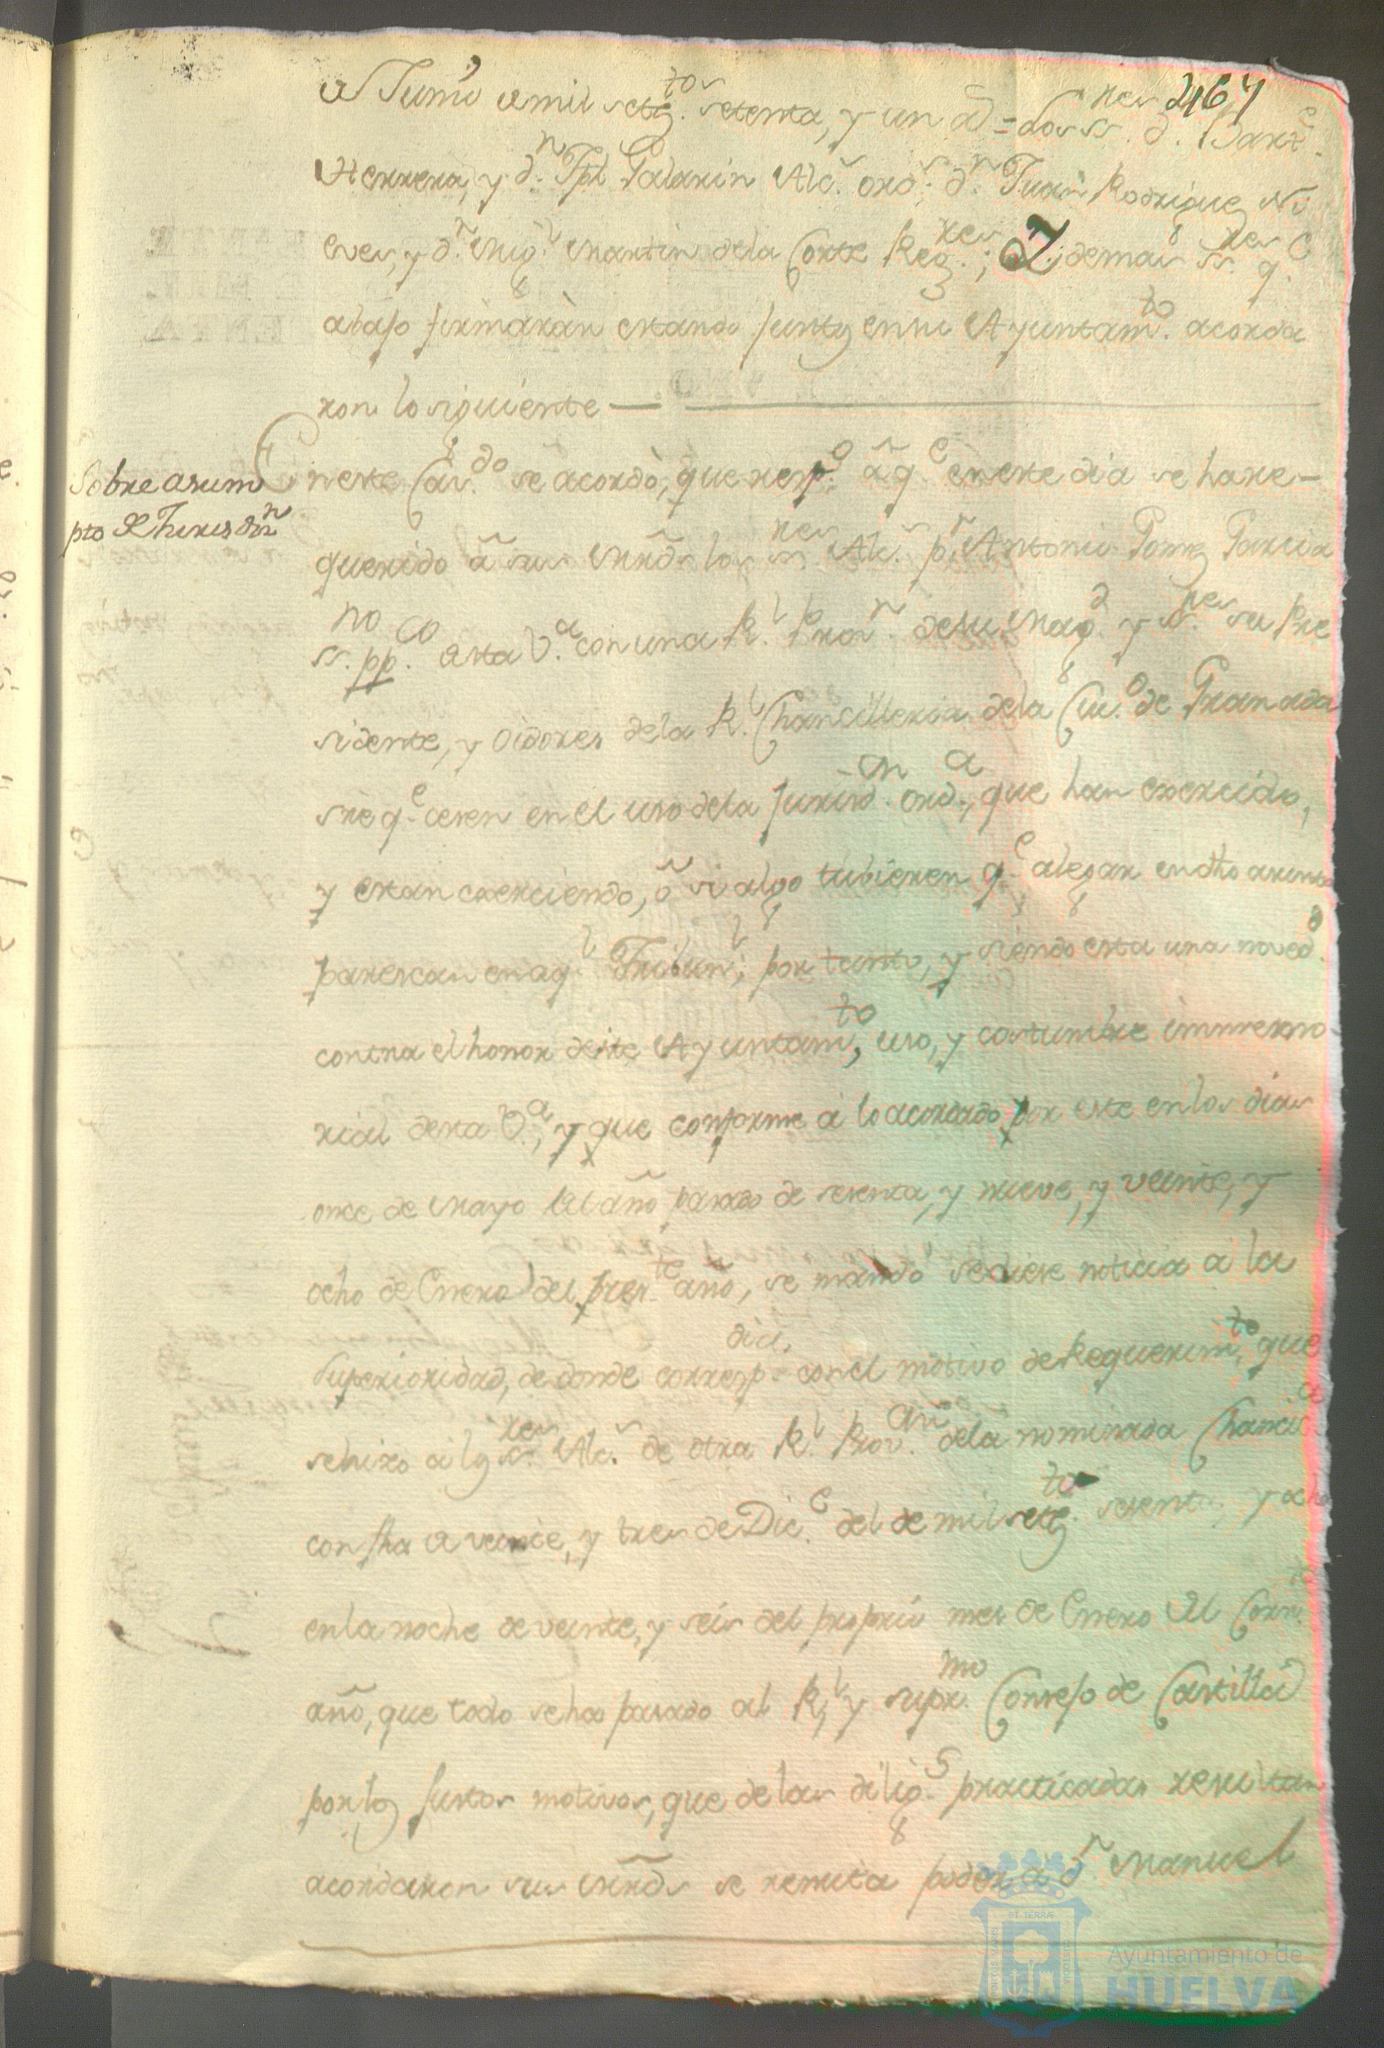 267
de Junio de mil sett.os setenta, y un a.s = Los ss.res d.n Bart.e
Herrera, y d.n Tpl Galarin Alc.s ord.s d.n Juan Rodriguez Ni
eves, y d.n Mig.l Martin de la Corte Reg.res; y demas ss.res q.e
abajo firmaràn estando juntos en su Ayuntam.to acorda
ron lo siguiente
Sobre asum
pto de Jurisd.n
En este Cav.do se acordò, que resp.o â q.e en este dia se ha re-
querido â sus Mrds los ss.res Alc.s p.r Antonio Gomez Garcia
ss.no pp.co de esta V.a con una R.l Prov.n de su Mag.d y ss.res su Pre
sidente, y Oidores de la R.l Chancilleria de la Ciu.d de Granada
sre q.e cesen en el uso de la Jurisd.on ord.a, que han exercido,
y estan exerciendo, ô si algo tubieren q.e alegar en dho asunto
parescan en aq.l Tribun.l; por tanto, y siendo esta una noved.d
contra el honor deste Ayuntam.to, uso, y costumbre immemo-
rial desta V.a, y que conforme á lo acordado por este en los dias
once de Mayo del año pasado de sesenta, y nueve, y veinte, y
ocho de Enero del pres.te año, se mandò se diese noticia a la
Superioridad, de donde corresp.diese con el motivo de Requerim.to que
se hizo a los ss.res Alc.s de otra R.l Prov.on de la nominada Chancill.a
con fha de veinte, y tres de Dic.e del de mil sett.os sesenta, y ocho
en la noche de veinte, y seis del proprio mes de Enero del Corr.te
año, que todo se ha pasado al R.l y supr.mo Consejo de Castilla
por los justos motivos, que de las dilig.s practicadas resultan
acordaron sus Mrds se remita poder a d.n Manuel
Ayuntamiento de
HUELVA